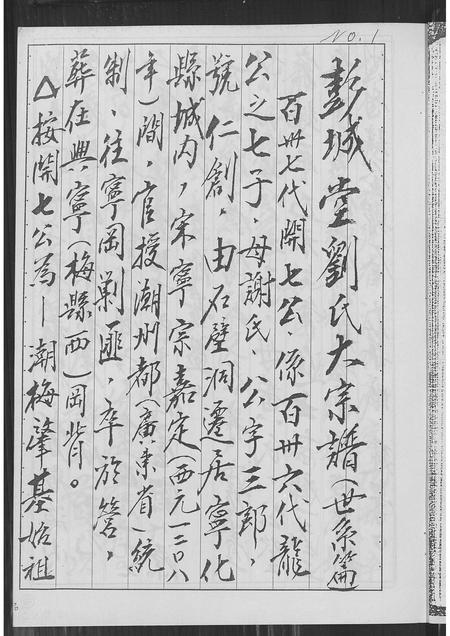 NO.1
彭城堂劉氏大宗譜(世系篇
百卅七代開七公、係百卅六代龍
公之七子、母謝氏、公字三郎，
號仁創。由石壁洞遷居寧化
縣城內，宋寧宗嘉定(西元一二〇八
年)間，官授潮州都(廣東省)統
制、往寧岡剿匪，卒於營，
葬在興寧(梅縣西)岡背。
△按開七公為—潮梅肇基始祖